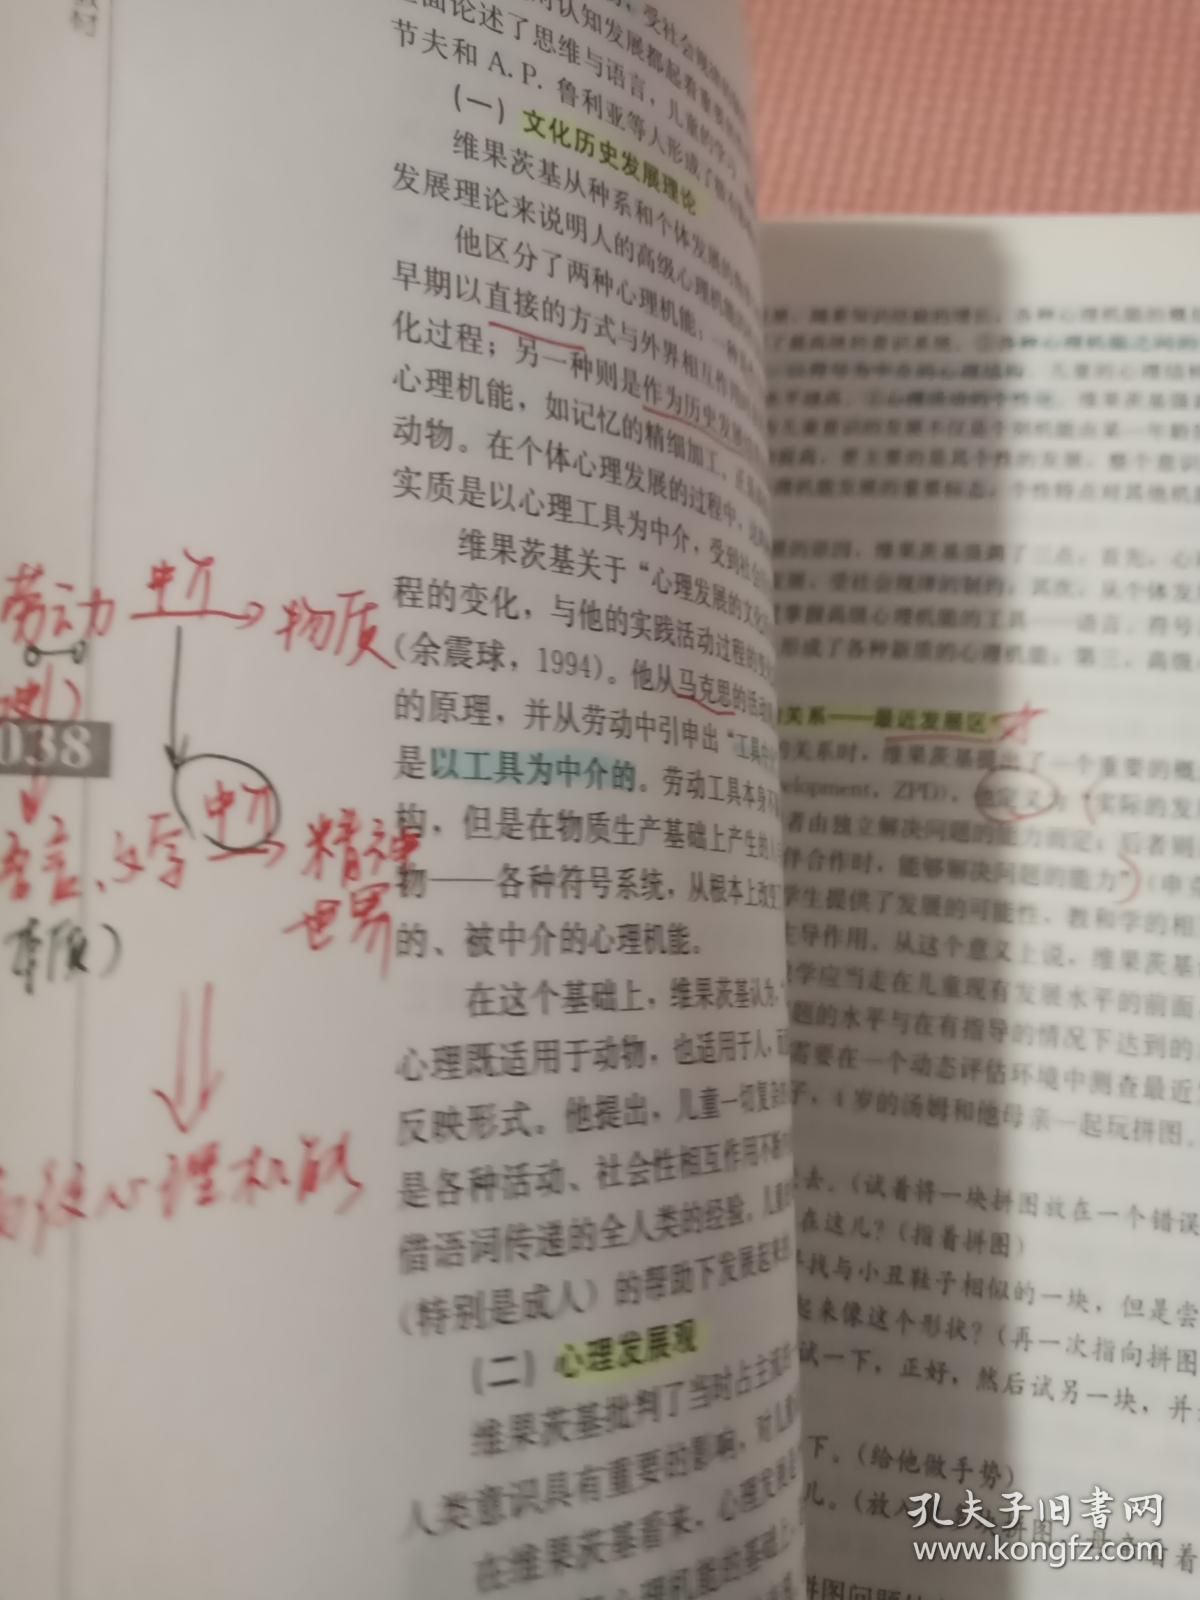 教材
受社会规律的
认知发展都起着重要的
面论述了思维与语言，儿童的学习
节夫和 A.P. 鲁利亚等人形成了
(一) 文化历史发展理论
维果茨基从种系和个体发展的
发展理论来说明人的高级心理机能
他区分了两种心理机能：一种
早期以直接的方式与外界相互作用
化过程；另一种则是作为历史发展
心理机能，如记忆的精细加工，
动物。在个体心理发展的过程中，
实质是以心理工具为中介，受到社会
维果茨基关于“心理发展的文化
程的变化，与他的实践活动过程的变
(余震球，1994)。他从马克思的活动
的原理，并从劳动中引申出“工具中介
是以工具为中介的。劳动工具本身不
构，但是在物质生产基础上产生的人
物——各种符号系统，从根本上改变
的、被中介的心理机能。
在这个基础上，维果茨基认为，
心理既适用于动物，也适用于人，而
反映形式。他提出，儿童一切复杂
是各种活动、社会性相互作用不断
借语词传递的全人类的经验。儿童
(特别是成人) 的帮助下发展起来的
(二) 心理发展观
维果茨基批判了当时占主流
人类意识具有重要的影响，对儿童
在维果茨基看来，心理发展是
心理机能的基础上，
038
劳动 中介 物质
语言、文字 中介 精神
世界
本质)
高级心理机能
随着知识经验的增长，各种心理机能的概
了最高级的意识系统。③各种心理机能之间的
以符号为中介的心理结构。儿童的心理结
水平越高。④心理活动的个性化。维果茨基强
儿童意识的发展不仅是个别机能由某一年龄
提高，更主要的是其个性的发展，整个意识
理机能发展的重要标志，个性特点对其他机
的原因，维果茨基强调了三点。首先，心
发展，受社会规律的制约；其次，从个体发
掌握高级心理机能的工具——语言、符号
形成了各种新质的心理机能；第三，高级
关系——最近发展区
的关系时，维果茨基提出了一个重要的概
elopment，ZPD)，他定义为“实际的发
者由独立解决问题的能力而定；后者则
伴合作时，能够解决问题的能力”(申
学生提供了发展的可能性，教和学的相
主导作用。从这个意义上说，维果茨基
教学应当走在儿童现有发展水平的前面
题的水平与在有指导的情况下达到的
需要在一个动态评估环境中测查最近
子，4 岁的汤姆和他母亲一起玩拼图。
去。(试着将一块拼图放在一个错误
在这儿？(指着拼图)
找与小丑鞋子相似的一块，但是尝
起来像这个形状？(再一次指向拼图
试一下，正好，然后试另一块，并
下。(给他做手势)
儿。(放入
拼图问题
孔夫子旧书网
www.kongfz.com